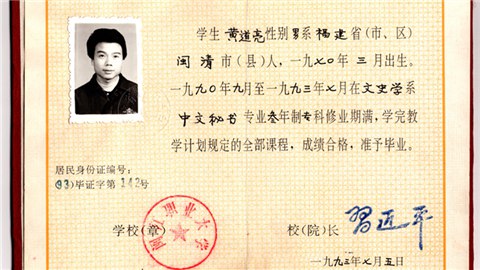 学生 黄道亮 性别 男 系 福建 省(市、区)
闽清 市(县)人，一九七〇年 三 月出生。
一九九〇年九月至一九九三年七月在 文史学 系
中文秘书 专业 叁 年制 专 科修业期满，学完教
学计划规定的全部课程，成绩合格，准予毕业。
居民身份证编号：
(93)毕证字第 142 号
学校(章)
江职业大学
校(院)长 习近平
一九九三年七月五日